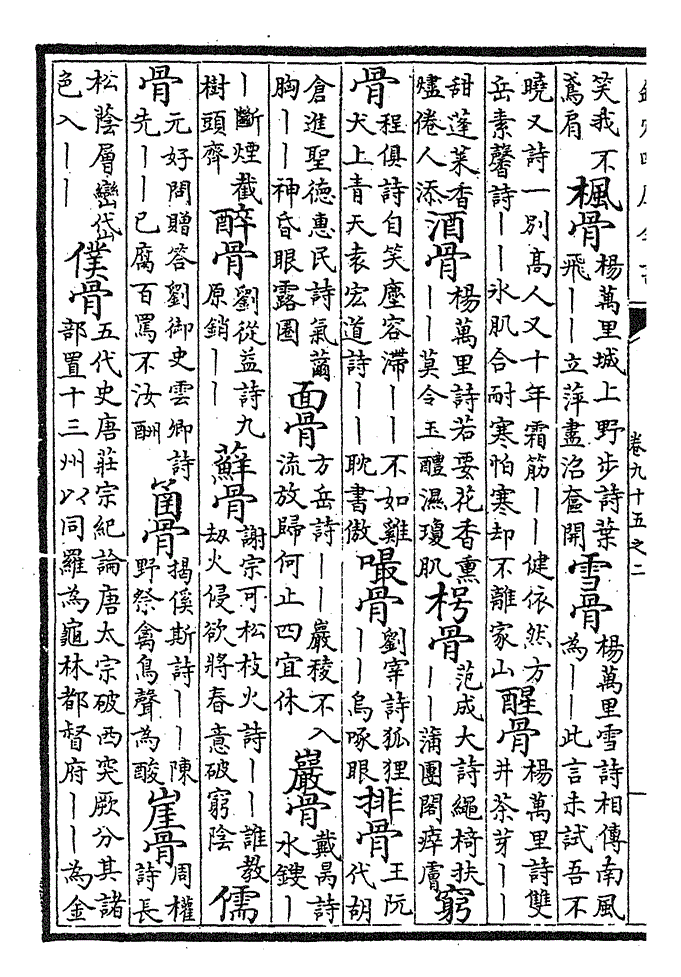 卷九十五之二
笑我不鳶肩 楓骨 楊萬里城上野步詩葉飛丨丨立萍盡沿奩開 雪骨 楊萬里雪詩相傳南風為丨丨此言未試吾不
曉又詩一別高人又十年霜筋丨丨健依然方岳素馨詩丨丨氷肌合耐寒怕寒却不離家山 醒骨 楊萬里詩雙井茶芽丨丨
甜蓬萊香燼倦人添 酒骨 楊萬里詩若要花香熏丨丨莫令玉醴濕瓊肌 枵骨 范成大詩繩椅扶丨丨蒲團閣瘁膚 窮
骨 程俱詩自笑塵容滯丨丨不如雞犬上青天袁宏道詩丨丨耽書傲 嘬骨 劉宰詩狐狸丨丨烏啄眼 排骨 王阮代胡
倉進聖德惠民詩氣薾胸丨丨神昏眼露圈 面骨 方岳詩丨丨巖稜不入流放歸何止四宜休 巖骨 戴昺詩水鎪丨
丨斷煙截樹頭齊 醉骨 劉從益詩九原銷丨丨 蘚骨 謝宗可松枝火詩丨丨誰教劫火侵欲將春意破窮陰 儒
骨 元好問贈答劉御史雲卿詩先丨丨已腐百罵不汝酬 箘骨 揭傒斯詩丨丨陳野祭禽鳥聲為酸 崖骨 周權詩長
松陰層巒岱色入丨丨 僕骨 五代史唐莊宗紀論唐太宗破西突厥分其諸部置十三州以同羅為龜林都督府丨丨為金